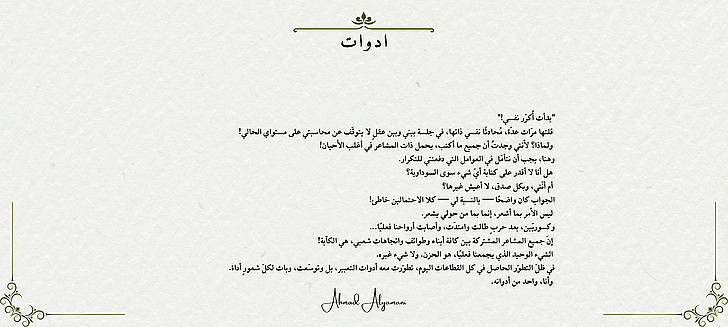 ادوات
"بدأت أُكرّر نفسي!"
قلتها مرّات عدّة، مُحادثًا نفسي ذاتها، في جلسة بيني وبين عقلٍ لا يتوقّف عن محاسبتي على مستواي الحالي!
ولماذا؟ لأنني وجدتُ أن جميع ما أكتب، يحمل ذات المشاعر في أغلب الأحيان!
وهنا، يجب أن نتأمّل في العوامل التي دفعتني للتكرار.
هل أنا لا أقدر على كتابة أيّ شيء سوى السوداوية؟
أم أنّني، وبكل صدق، لا أعيش غيرها؟
الجواب كان واضحًا — بالنسبة لي — كلا الاحتمالين خاطئ!
ليس الأمر بما أشعر، إنما بما من حولي يشعر.
وكسوريّين، بعد حربٍ طالت وامتدّت، وأصابت أرواحنا فعليًا...
إنّ جميع المشاعر المشتركة بين كافة أبناء وطوائف واتجاهات شعبي، هي الكآبة!
الشيء الوحيد الذي يجمعنا فعليًا، هو الحزن. ولا شيء غيره.
في ظلّ التطوّر الحاصل في كل القطاعات اليوم، تطوّرت معه أدوات التعبير، بل وتوسّعت، وبات لكلّ شعورٍ أداة.
وأنا، واحد من أدواته.
Ahmad Alyamani